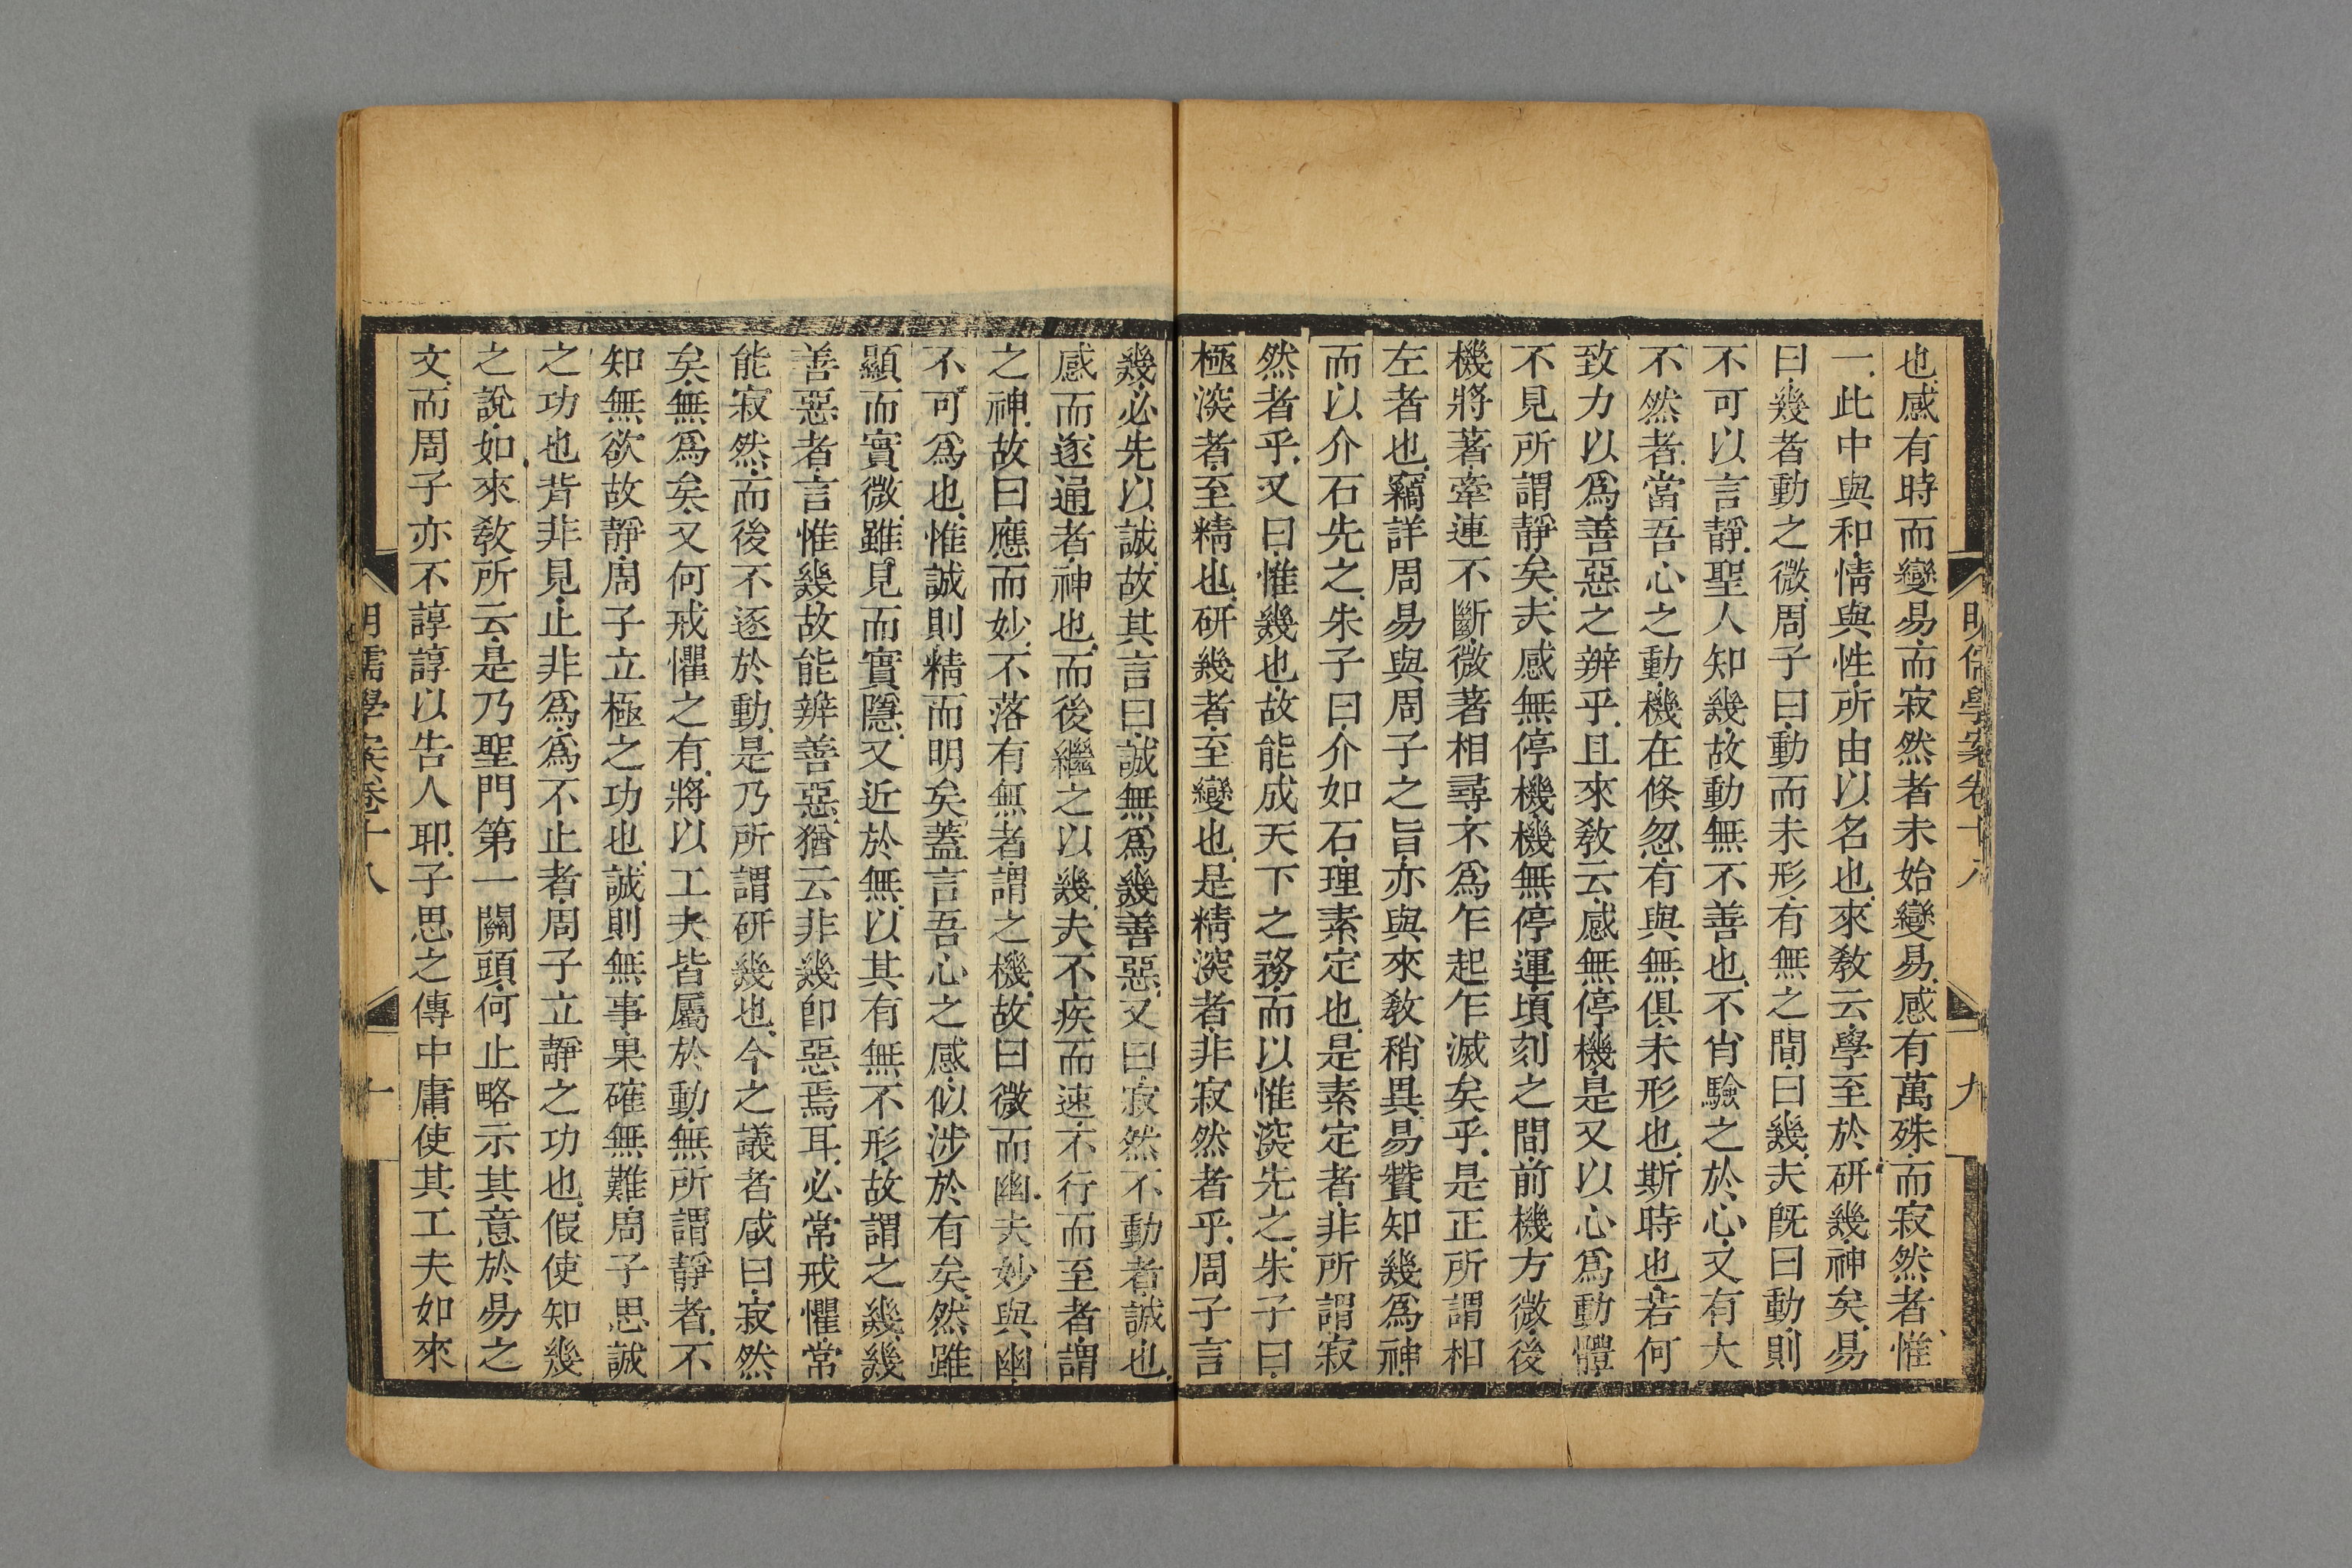 明儒學案卷十八
九
也感有時而變易而寂然者未始變易感有萬殊而寂然者惟
一此中與和情與性所由以名也來敎云學至於研幾神矣易
曰幾者動之微周子曰動而未形有無之間曰幾夫旣曰動則
不可以言靜聖人知幾故動無不善也不肖驗之於心又有大
不然者當吾心之動機在倐忽有與無俱未形也斯時也若何
致力以爲善惡之辨乎且來敎云感無停機是又以心爲動體
不見所謂靜矣夫感無停機機無停運頃刻之間前機方微後
機將著牽連不斷微著相尋不爲乍起乍滅矣乎是正所謂相
左者也竊詳周易與周子之旨亦與來敎稍異易贊知幾爲神
而以介石先之朱子曰介如石理素定也是素定者非所謂寂
然者乎又曰惟幾也故能成天下之務而以惟深先之朱子曰
極深者至精也研幾者至變也是精深者非寂然者乎周子言
幾必先以誠故其言曰誠無爲幾善惡又曰寂然不動者誠也
感而遂通者神也而後繼之以幾夫不疾而速不行而至者謂
之神故曰應而妙不落有無者謂之機故曰微而幽夫妙與幽
不可爲也惟誠則精而明矣蓋言吾心之感似涉於有矣然雖
顯而實微雖見而實隱又近於無以其有無不形故謂之幾幾
善惡者言惟幾故能辨善惡猶云非幾卽惡焉耳必常戒懼常
能寂然而後不逐於動是乃所謂研幾也今之議者咸曰寂然
矣無爲矣又何戒懼之有將以工夫皆屬於動無所謂靜者不
知無欲故靜周子立極之功也誠則無事果確無難周子思誠
之功也背非見止非爲爲不止者周子立靜之功也假使知幾
之說如來敎所云是乃聖門第一關頭何止略示其意於易之
文而周子亦不諄諄以告人耶子思之傳中庸使其工夫如來
明儒學案卷十八
十